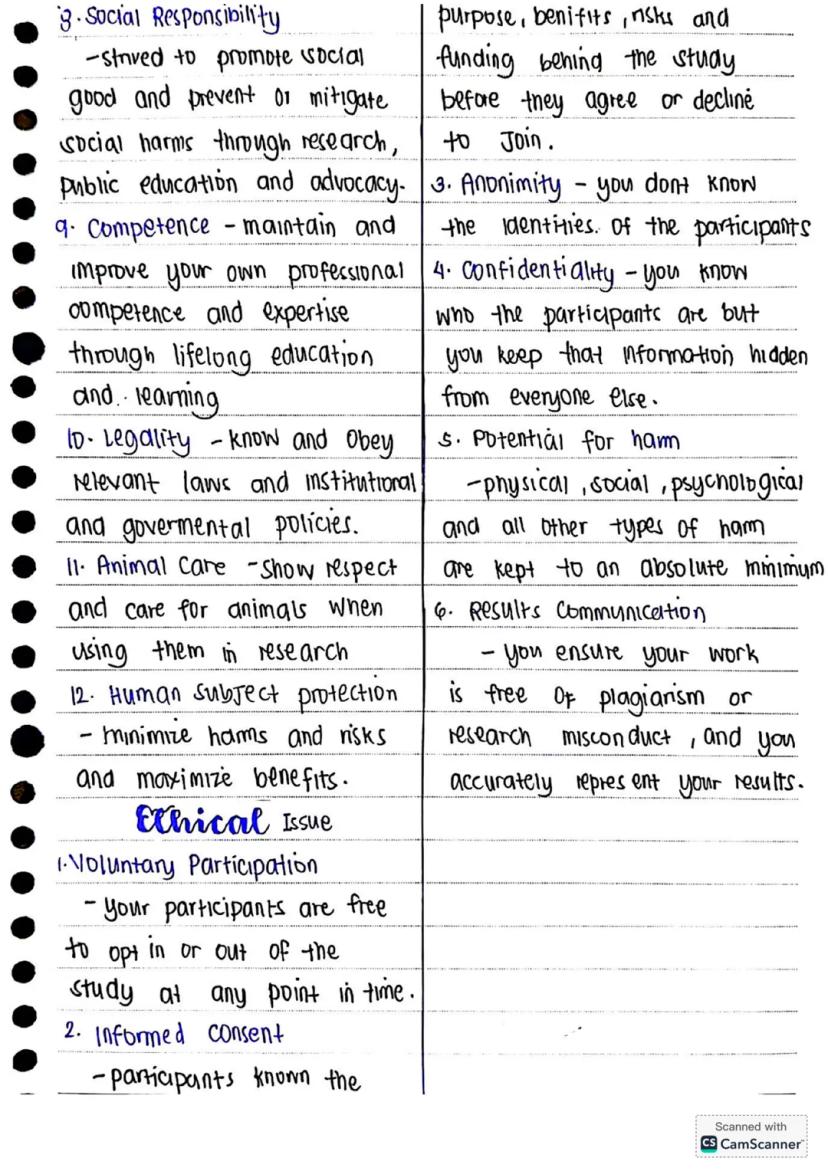 8. Social Responsibility
-strived to promote social
good and prevent or mitigate
social harms through research,
public education and advocacy.
9. Competence - maintain and
improve your own professional
competence and expertise
through lifelong education
and learning
10. Legality - know and obey
relevant laws and institutional
and govermental policies.
11. Animal Care - show respect
and care for animals when
using them in research
12. Human Subject protection
- minimize harms and risks
and maximize benefits.
Ethical Issue
1. Voluntary Participation
- Your participants are free
to opt in or out of the
study at any point in time.
2. Informed consent
- participants known the
purpose, benifits, risks and
funding behing the study
before they agree or decline
to Join.
3. Anonimity - you dont know
the identities of the participants
4. Confidentiality - you know
who the participants are but
you keep that information hidden
from everyone else.
5. Potential for harm
- physical, social, psychological
and all other types of harm
are kept to an absolute minimum
6. Results Communication
- you ensure your work
is free of plagiarism or
research misconduct, and you
accurately represent your results.
Scanned with
CS CamScanner